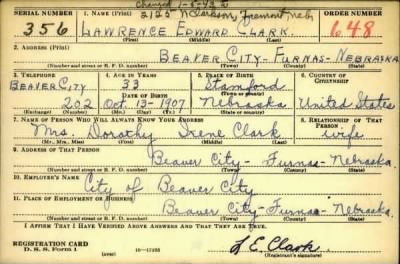 Changed 1-5-43 to
SERIAL NUMBER 1. NAME (Print) 2125 N Clarkson, Fremont, Neb ORDER NUMBER
356 LAWRENCE EDWARD CLARK 648
(First) (Middle) (Last)
2. ADDRESS (Print)
BEAVER CITY - FURNAS - NEBRASKA
(Number and street or R. F. D. number) (Town) (County) (State)
3. TELEPHONE 4. AGE IN YEARS 5. PLACE OF BIRTH 6. COUNTRY OF CITIZENSHIP
BEAVER CITY 33 Stamford
DATE OF BIRTH (Town or county)
202 Oct. 13-1907 Nebraska United States
(Exchange) (Number) (Mo.) (Day) (Yr.) (State or country)
7. NAME OF PERSON WHO WILL ALWAYS KNOW YOUR ADDRESS 8. RELATIONSHIP OF THAT PERSON
Mrs. Dorothy Irene Clark wife
(Mr., Mrs., Miss) (First) (Middle) (Last)
9. ADDRESS OF THAT PERSON
Beaver City - Furnas - Nebraska.
(Number and street or R. F. D. number) (Town) (County) (State)
10. EMPLOYER'S NAME
City of Beaver City
11. PLACE OF EMPLOYMENT OR BUSINESS
Beaver City - Furnas - Nebraska.
(Number and street or R. F. D. number) (Town) (County) (State)
I AFFIRM THAT I HAVE VERIFIED ABOVE ANSWERS AND THAT THEY ARE TRUE.
REGISTRATION CARD
D. S. S. Form 1 (over) L E. Clark
(Registrant's signature)